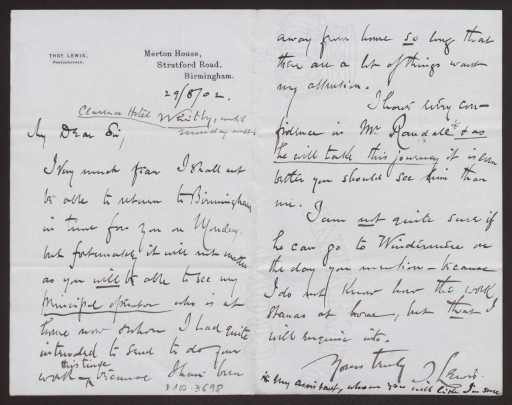 THOS. LEWIS,
PHOTOGRAPHER.
Merton House,
Stratford Road,
Birmingham.
29/8/02.
Clarence Hotel Whitby, until
Monday next
My Dear Sir,
I Very much fear I shall not
be able to return to Birmingham
in time for you on Monday.
but fortunately it will not matter
as you will be able to see my
Principal operator who is at
home now & whom I had quite
intended to send to do your
work this time because I have been
D10-3698
away from home so long that
there are a lot of things want
my attention.
I have every con-
fidence in Mr Randall & as
he will take this journey it is even
better you should see him than
me.
I am not quite sure if
he can go to Windermere on
the day you mention - because
I do not know how the work
stands at home, but that I
will enquire into.
Yours truly T Lewis.
* My assistant, whom you will like I'm sure